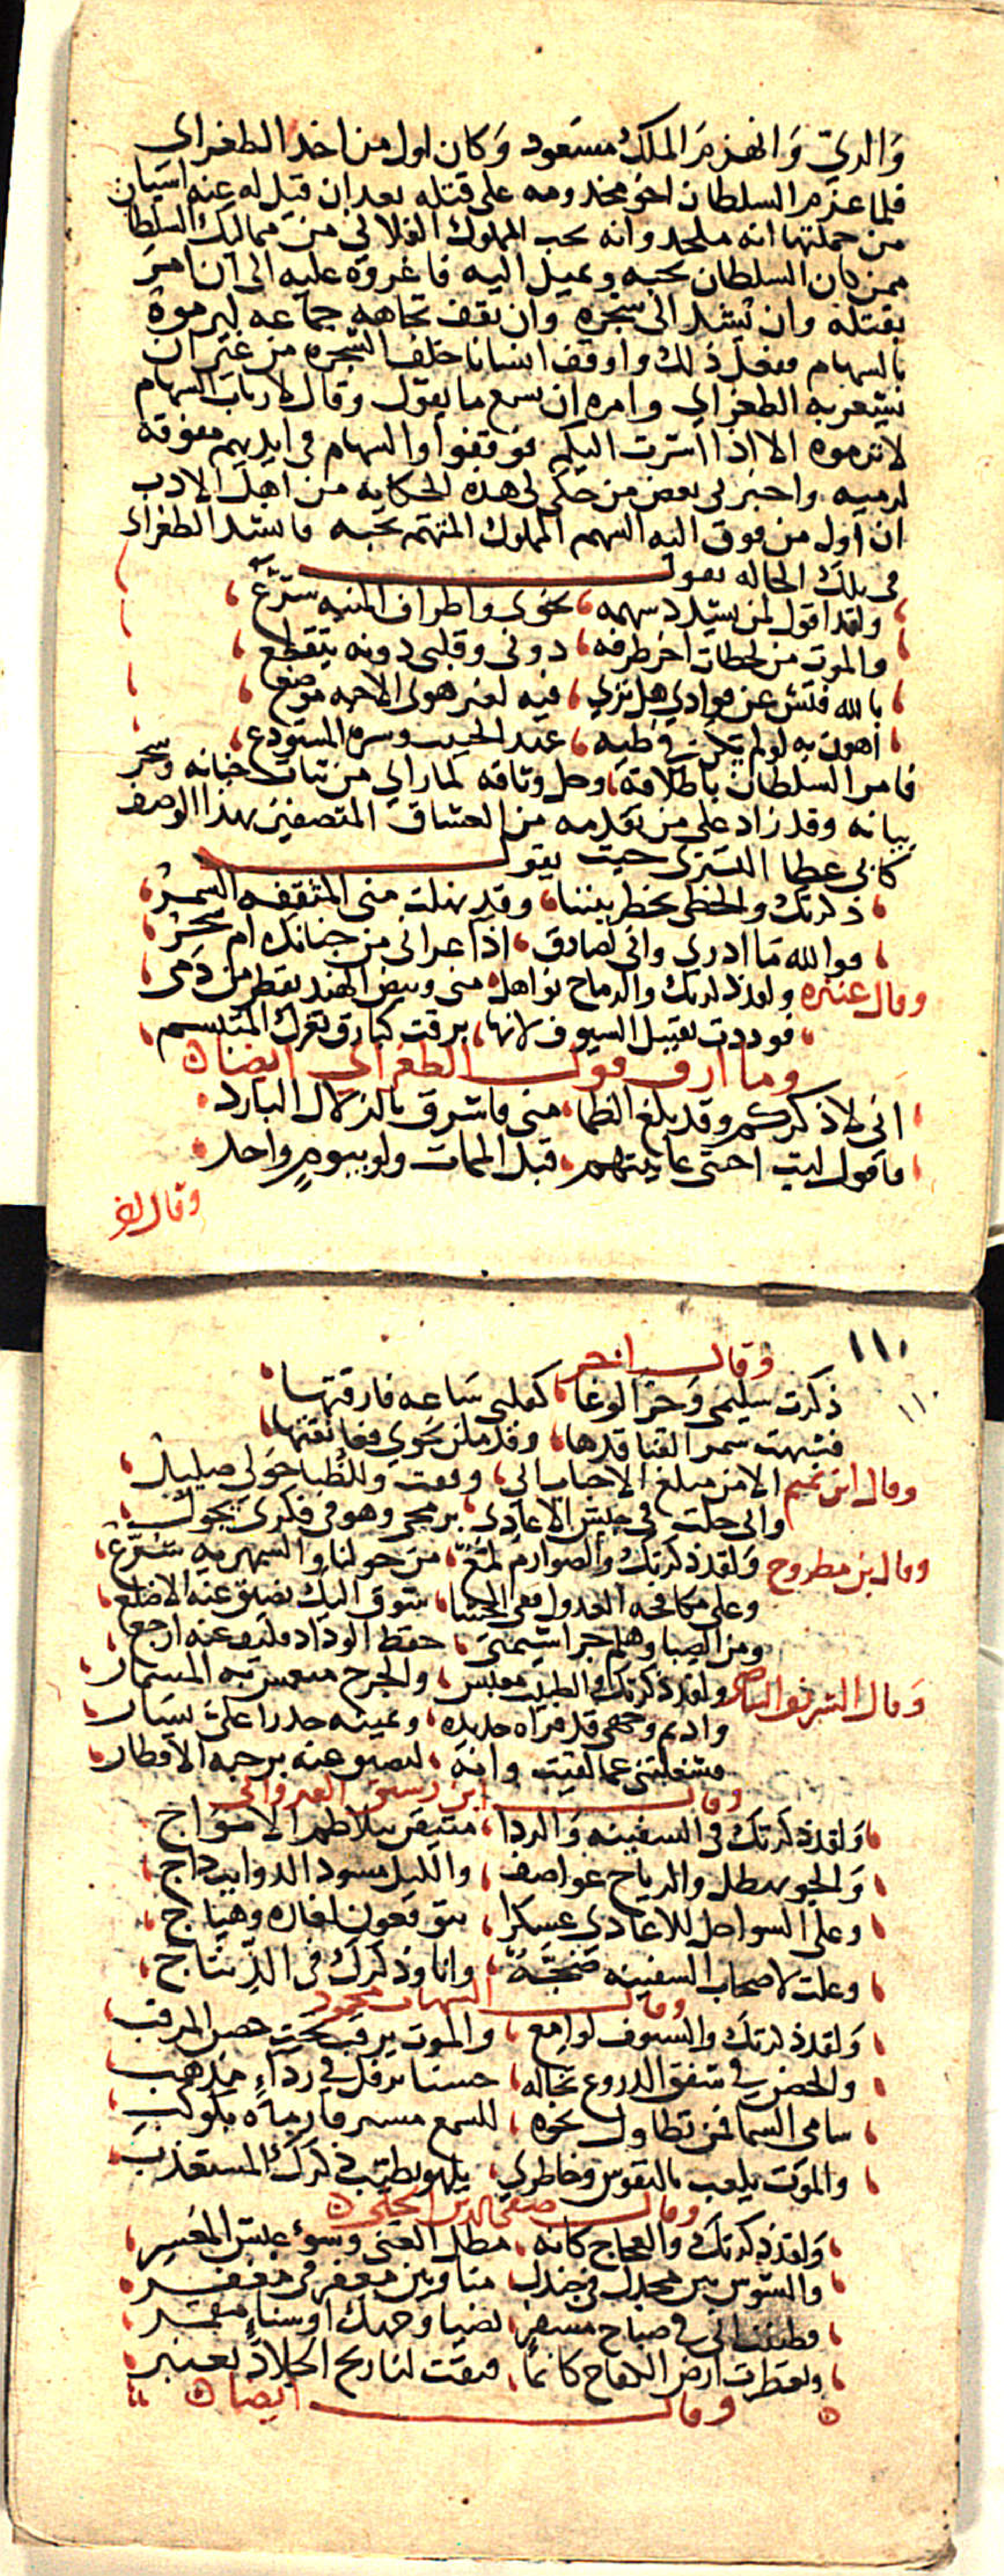 والري وانهزم الملك مسعود وكان اول من اخذ الطغراي
فلما عزم السلطان اخو مخدومه على قتله بعد ان قيل له عنه اشيا من
من جملتها انه ملحد وانه يحب المملوك الفلاني من مماليك السلطان
ممن كان السلطان يحبه ويميل اليه فاغروه عليه الى ان امر
بقتله وان يشد الى شجره وان يقف تجاهه جماعه ليرموه
بالسهام ففعل ذلك واوقف انسانا خلف الشجره من غير ان
يشعر به الطغراي وامره ان يسمع ما يقول وقال لارباب السهام
لا ترموه الا اذا اشرت اليكم فوقفوا والسهام في ايديهم مفوقه
لرميه واخبرني بعض من حكى لي هذه الحكايه من اهل الادب
ان اول من فوق اليه السهم المملوك المتهم بحبه فانشد الطغراي
في تلك الحاله يقول
ولقد اقول لمن يسدد سهمه نحوي واطراف المنيه شرع
والموت من لحظات اخر طرفه دوني وقلبي دونه يتقطع
بالله فتش عن فوادي هل تري فيه لغير هوى الاحبه موضع
اهون به لو لم يكن في طيه عند الحبيب وسره المستودع
فامر السلطان باطلاقه وحل وثاقه لما راي من ثبات جنانه وسحر
بيانه وقد زاد على من تقدمه من العشاق المتصفين بهذا الوصف
كابي عطا السندي حيث يقول
ذكرتك والخطى يخطر بيننا وقد نهلت مني المثقفه السمر
فوالله ما ادري واني لصادق اذا عراني من جنانك ام سحر
وقال عنتره ولقد ذكرتك والرماح نواهل مني وبيض الهند تقطر من دمى
فوددت تقبيل السيوف لانها برقت كبارق ثغرك المتبسم
وما ارق قول الطغراي ايضا
اني لاذكركم وقد بلغ الظما مني فاشرق بالزلال البارد
فاقول ليت احبتي عاينتهم قبل الممات ولو بيوم واحد
وقال اخر
١١٠
١١٠
وقال اخر
ذكرت سليمى وحر الوغا كقلبى ساعه فارقتها
فشبهت سمر القنا قدها وقد ملن نحوي فعانقتها
وقال ابن تميم الا من مبلغ الاحباب اني وقفت وللظبا حولي صليل
واني جلت في جيش الاعادي برمحي وهو في فكري يجول
وقال بن مطروح ولقد ذكرتك والصوارم لمع من حولنا والسمهريه شرع
وعلى مكافحه العدو ففي الحشا شوق اليك تضيق عنه الاضلع
ومن الصبا وهلم جرا شيمتي حفظ الوداد فكيف عنه ارجع
وقال الشريف ولقد ذكرتك والطبيب معبس والجرح منغمس به المسمار
واديم وجهى قد فراه حديده ويمينه حذرا على يسار
فشغلتني عما لقيت وانه لتضيق عنه برحبه الاقطار
وقال ابن رشيق القيرواني
ولقد ذكرتك في السفينه والردا متيقن بتلاطم الامواج
والجو يهطل والرياح عواصف والليل مسود الذوايب داج
وعلى السواحل للاعادي عسكرا يتوقعون لغاره وهياج
وعلت لاصحاب السفينه ضجة وانا وذكرك في الذ تناج
وقال الشهاب محمود
ولقد ذكرتك والسيوف لوامع والموت يرقب تحت حصن المرقب
والحصن في شفق الدروع تخاله حسنا ترفل في رداء مذهب
سامى السما فمن تطاول نحوه للسمع مسترقا رماه بكوكب
والموت يلعب بالنفوس وخاطري يلهو بطيب ذكرك المستعذب
وقال صفي الدين الحلي
ولقد ذكرتك والعجاج كانه مطل الغنى وسوء عيش المعسر
والشوس بين مجدل في جندل منا وبين معفر في مغفر
فظننت اني في صباح مسفر بضيا وجهك او سناء مقمر
وتعطرت ارض الكفاح كانما فتقت لنا ريح الجلاد بعنبر
وقال ايضا